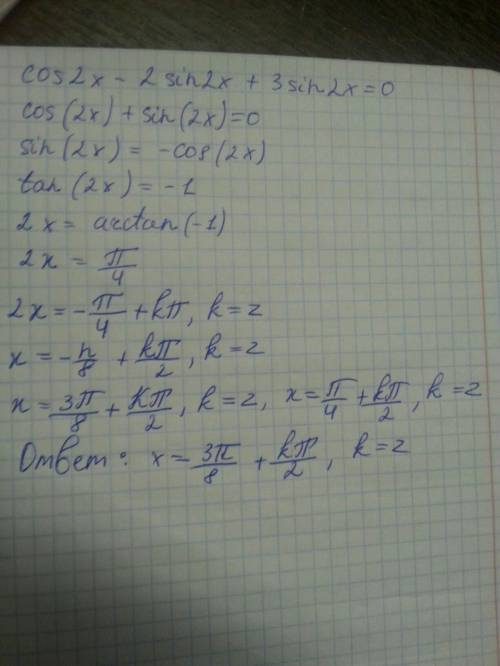 cos2x - 2 sin2x + 3 sin2x = 0
cos(2x) + sin(2x) = 0
sin(2x) = -cos(2x)
tan(2x) = -1
2x = arctan(-1)
2x = π/4
2x = -π/4 + kπ, k = z
x = -π/8 + kπ/2, k = z
x = 3π/8 + kπ/2, k = z, x = π/4 + kπ/2, k = z
Ответ: x = 3π/8 + kπ/2, k = z